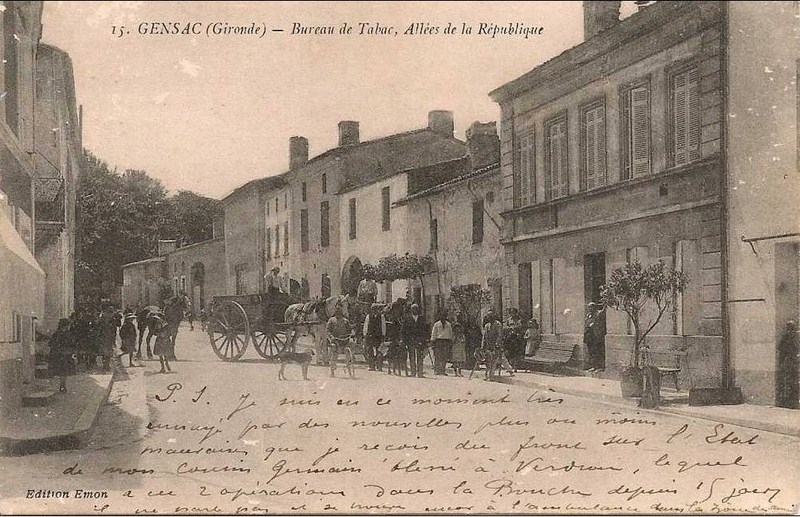 15. GENSAC (Gironde) — Bureau de Tabac, Allées de la République
P. S. Je suis en ce moment très
ennuyé par des nouvelles plus ou moins
mauvaises que je reçois du front sur l'Etat
de mon cousin Germain blessé à Verdun, lequel
a eu 2 opérations dans la Bouche depuis 15 jours
il ne parle pas et se trouve encor à l'ambulance dans la
Edition Emon